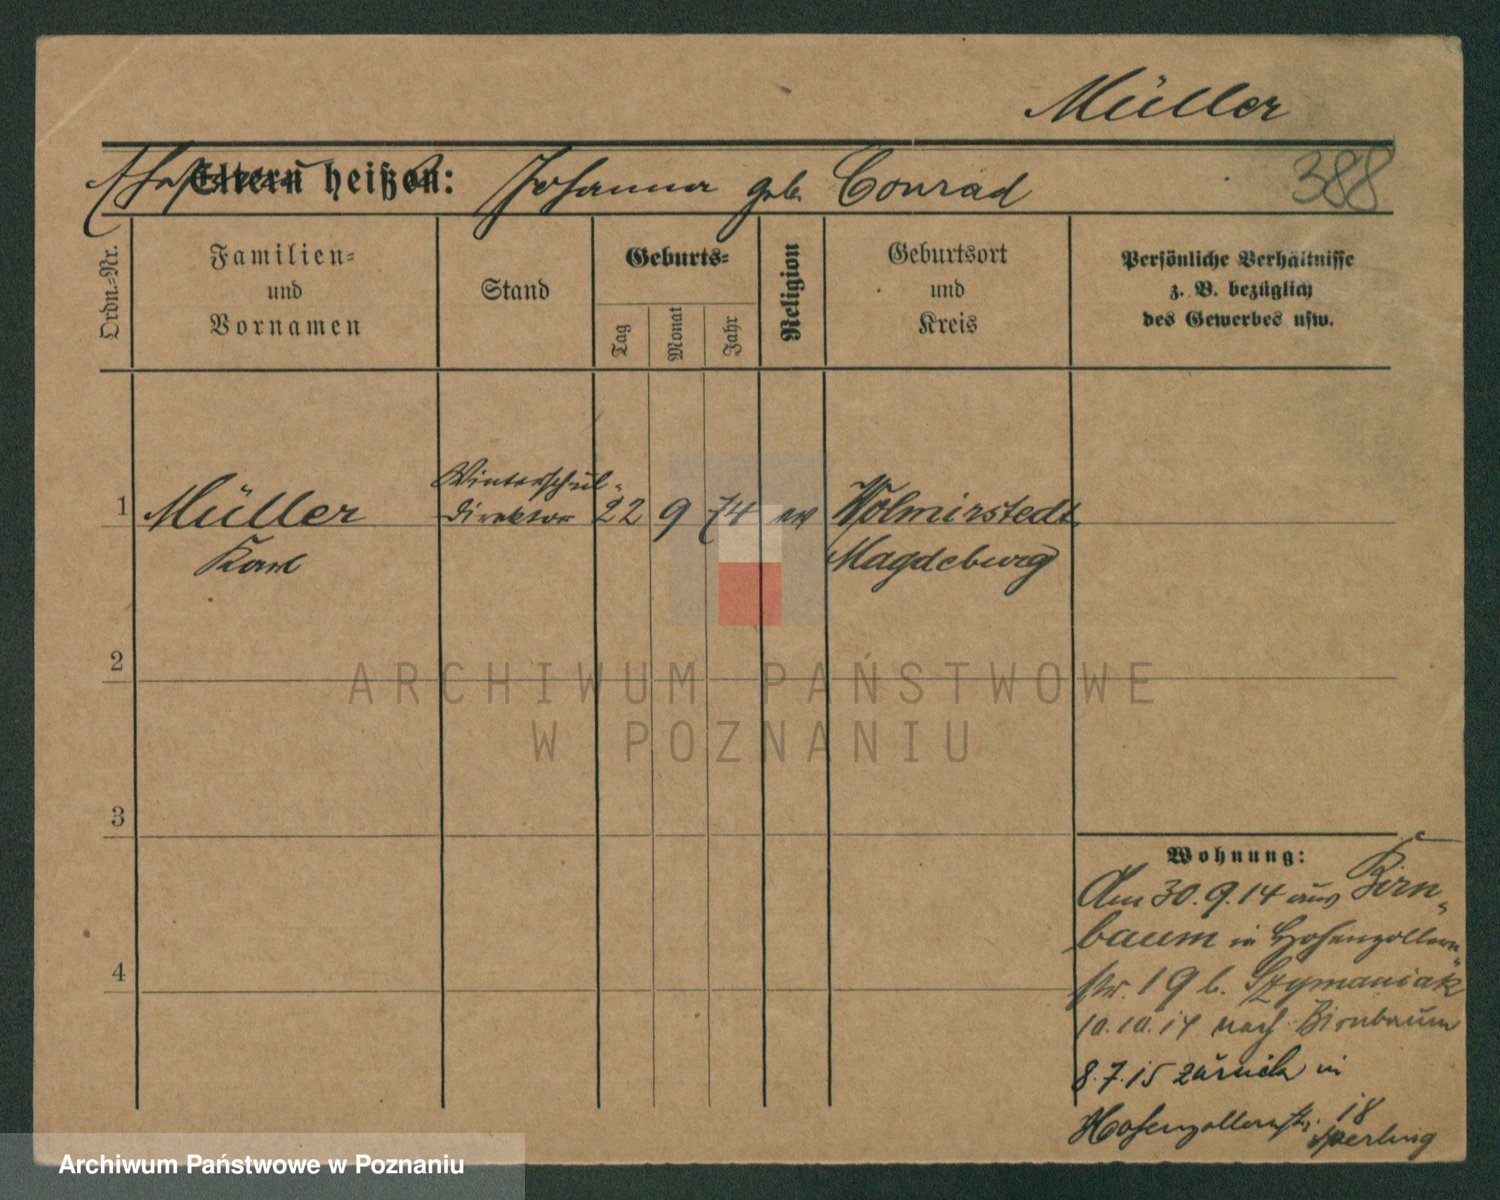 Müller
388
Eltern heißen: Johanna geb. Conrad
Ordn.-Nr.
Familien-
und
Vornamen
Stand
Geburts-
Tag
Monat
Jahr
Religion
Geburtsort
und
Kreis
Persönliche Verhältnisse
z. B. bezüglich
des Gewerbes usw.
1 Müller Winterschul- 22 9 74 ev Wolmirstedt
Karl direktor Magdeburg
2
3
4
Wohnung:
Am 30.9.14 aus Birn-
baum in Hohenzollern-
str. 19 b. Szymaniak
10.10.14 nach Birnbaum
8.7.15 zurück in
Hohenzollernstr. 18
Sperling
ARCHIWUM PAŃSTWOWE
W POZNANIU
Archiwum Państwowe w Poznaniu